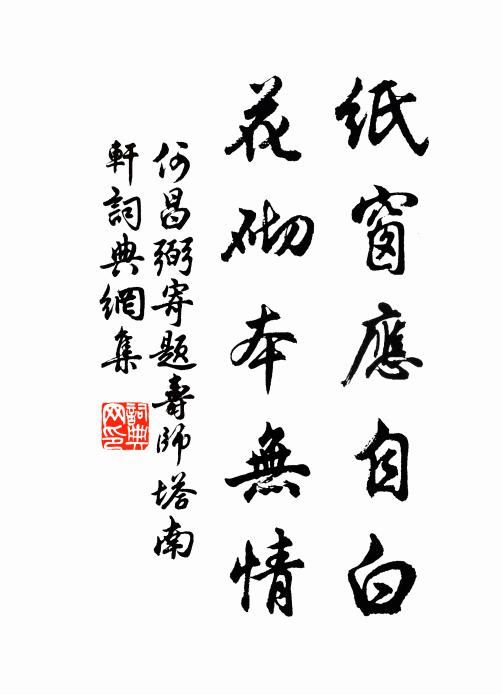 紙窗應自白
花砌本無情
何昌弼寄題壽師塔南
軒詞典網集
詞典网印